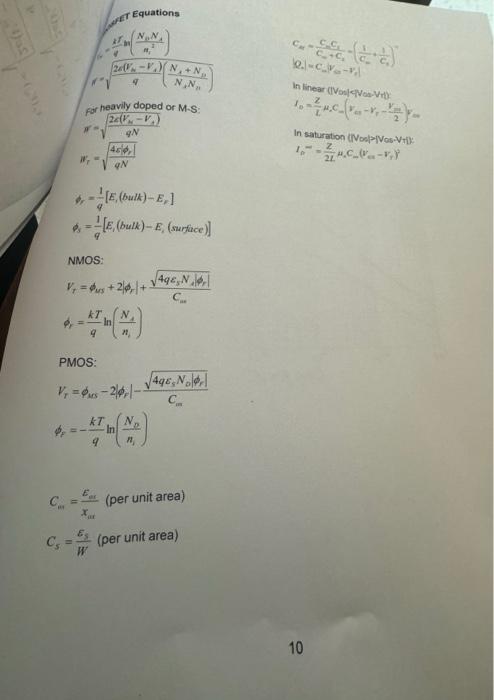 MOSFET Equations
V_bi = kT/q ln(N_D N_A / n_i²)
W = √(2ε(V_bi − V_A)/q (N_A + N_D)/(N_A N_D))
For heavily doped or M-S:
W = √(2ε(V_bi − V_A)/qN)
W_T = √(4ε|φ_F|/qN)
φ_F = 1/q [E_i(bulk) − E_F]
φ_S = 1/q [E_i(bulk) − E_i(surface)]
NMOS:
V_T = φ_MS + 2|φ_F| + √(4qε_S N_A|φ_F|)/C_ox
φ_F = kT/q ln(N_A/n_i)
PMOS:
V_T = φ_MS − 2|φ_F| − √(4qε_S N_D|φ_F|)/C_ox
φ_F = − kT/q ln(N_D/n_i)
C_ox = ε_ox/x_ox (per unit area)
C_S = ε_S/W (per unit area)
= C_ox C_S/(C_ox + C_S) = (1/C_ox + 1/C_S)⁻¹
= C_ox|V_GS − V_T|
In linear (|V_DS|<|V_GS-V_T|):
I_D = Z/L μ_n C_ox (V_GS − V_T − V_DS/2) V_DS
In saturation (|V_DS|>|V_GS-V_T|):
= Z/2L μ_n C_ox (V_GS − V_T)²
10